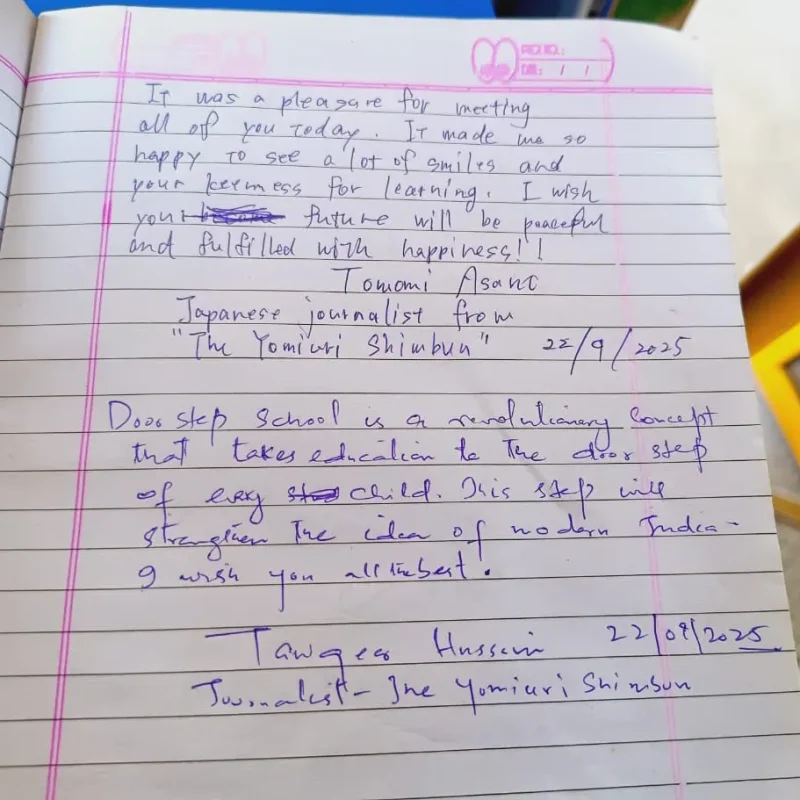 PAGE NO.:
DATE: / /
It was a pleasure for meeting
all of you today. It made me so
happy to see a lot of smiles and
your keenness for learning. I wish
your future will be peaceful
and fulfilled with happiness!!
Tomomi Asano
Japanese journalist from
"The Yomiuri Shimbun" 22/9/2025
Door step School is a revolutionary Concept
that takes education to the door step
of every child. This step will
strengthen the idea of modern India-
I wish you all the best.
Tawqeer Hussain 22/09/2025
Journalist- The Yomiuri Shimbun